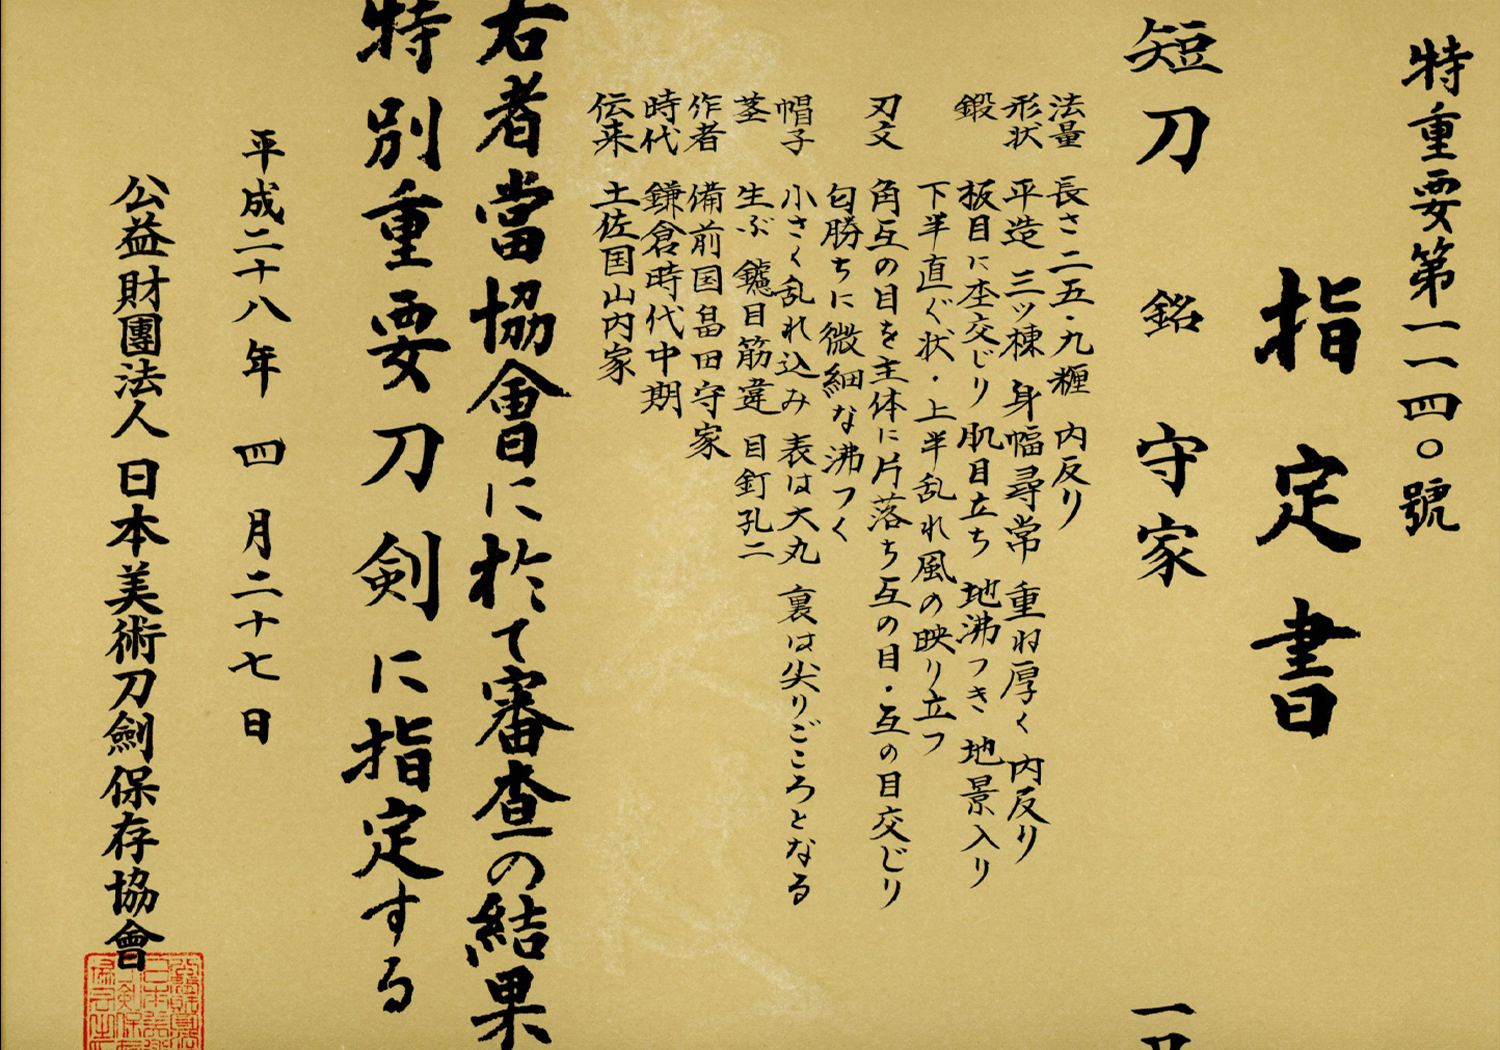 特重要第一一四〇號
指定書
短刀 銘 守家 一口
法量 長さ二五・九糎 内反り
形状 平造 三ツ棟 身幅尋常 重ね厚く 内反り
鍛 板目に杢交じり 肌目立ち 地沸つき 地景入り
下半直ぐ状・上半乱れ風の映り立つ
刃文 角互の目を主体に片落ち互の目・互の目交じり
匂勝ちに微細な沸つく
帽子 小さく乱れ込み 表は大丸 裏は尖りごころとなる
茎 生ぶ 鑢目筋違 目釘孔二
作者 備前国畠田守家
時代 鎌倉時代中期
伝来 土佐国山内家
右者當協會に於て審査の結果
特別重要刀剣に指定する
平成二十八年 四月二十七日
公益財團法人 日本美術刀劍保存協會